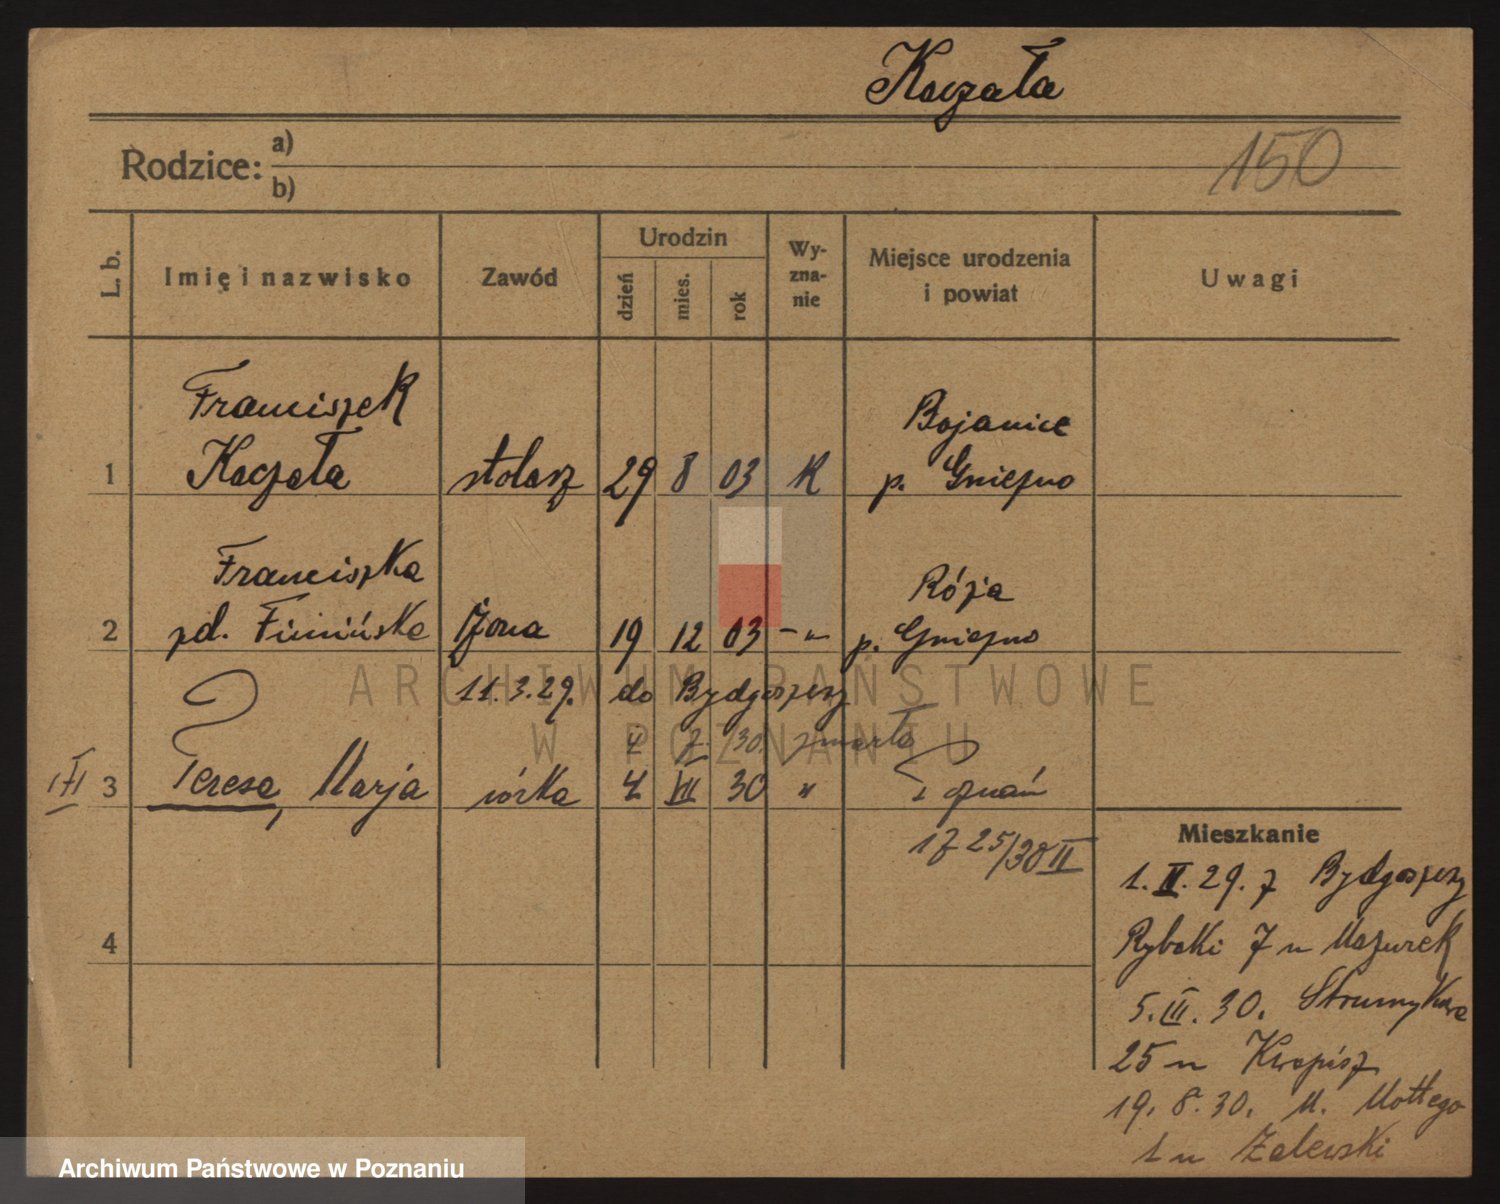 Kaczała
150
Rodzice: a)
b)
L. b.
Imię i nazwisko
Zawód
Urodzin
dzień
mies.
rok
Wy-
zna-
nie
Miejsce urodzenia
i powiat
Uwagi
Franciszek
Kaczała
Bojanice
1 stolarz 29 8 03 K p. Gniezno
Franciszka
zd. Fimińska
Róża
2 żona 19 12 03 -"- p. Gniezno
11.3.29. do Bydgoszczy
4 7. 30. zmarła
3 Teresa, Marja córka 4 VII 30 " Poznań
25/30 II
4
Mieszkanie
1. II. 29. z Bydgoszczy
Rybaki 7 u Mazurek
5. III. 30. Strumykowa
25 u Kwapisz
19. 8. 30. M. Mottego
1 u Zalewski
ARCHIWUM PAŃSTWOWE
W POZNANIU
Archiwum Państwowe w Poznaniu